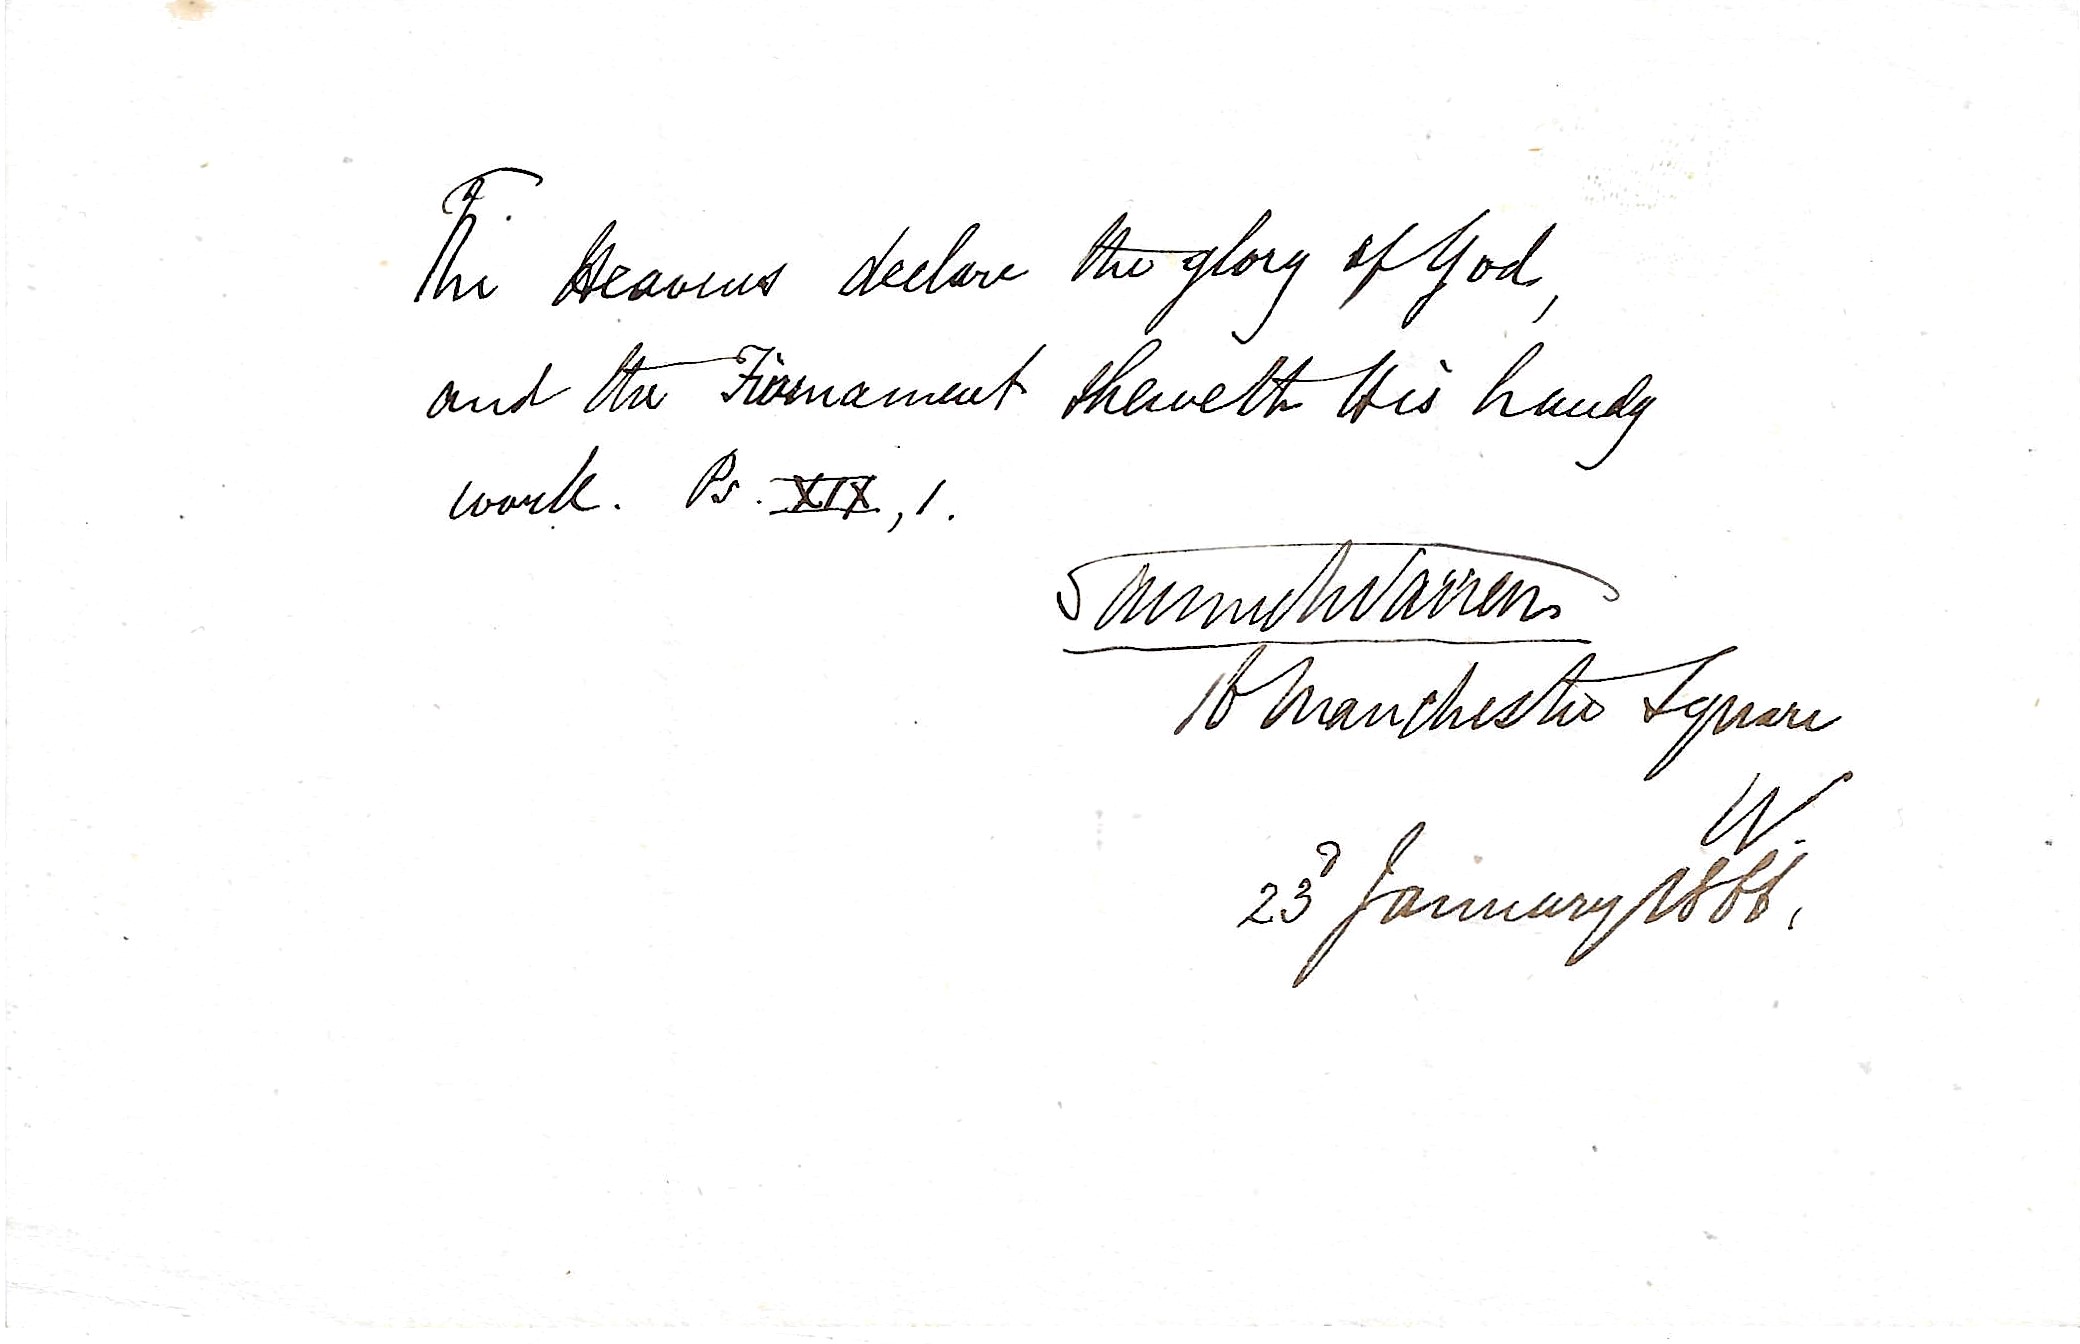 The Heavens declare the glory of God,
and the Firmament sheweth His handy
work. Ps. XIX, 1.
Samuel Warren
16 Manchester Square
W.
23d January 1866.